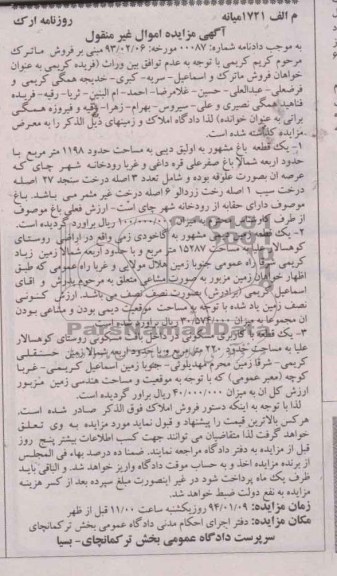 م الف ۱۷۲۱میانه روزنامه ارک
آگهی مزایده اموال غیر منقول
به موجب دادنامه شماره: ۰۰۰۸۷ مورخه: ۹۳/۰۲/۰۶ مبنی بر فروش ماترک
مرحوم کریم کریمی با توجه به عدم توافق بین وراث (فریده کریمی به عنوان
خواهان فروش ماترک و اسماعیل- سریه- کبری- خدیجه همگی کریمی و
فرضعلی- عبدالعلی- حسین- غلامرضا- احمد- ام البنین- ثریا- رقیه- فریده
فناهید همگی نصیری و علی- سیروس- بهرام- زهرا- رقیه و فیروزه همگی
براتی به عنوان خوانده) لذا دادگاه املاک و زمینهای ذیل الذکر را به معرض
مزایده گذاشته شده است.
۱- یک قطعه باغ مشهور به اولیق دیبی به مساحت حدود ۱۱۹۸ متر مربع با
حدود اربعه شمالا باغ صفرعلی قره داغی و غربا رودخانه شهر چای که
عرصه ان بصورت علوفه بوده و شامل تعدد ۳ اصله درخت سنجد ۲۷ اصله
درخت سیب ۱ اصله رخت زردالو ۶ اصله درخت غیر مثمر می باشد. باغ
موصوف دارای حقابه از رودخانه شهر چای است- ارزش فعلی باغ موصوف
از طرف کارشناس محترم به میزان ۱۰۰/۰۰۰/۰۰۰ ریال براورد گردیده است.
۲- یک قطعه زمین دیمی مشهور به گاخودی زمی واقع در اراضی روستای
کوهسالار علیا به مساحت ۱۵۲۸۷ متر مربع و با حدود اربعه شمالا زمین زیاد
کریمی شرقا راه عمومی جنوبا زمین هلال مولایی و غربا راه عمومی که طبق
اظهار خواهان زمین مزبور به صورت مشاعی متعلق به مرحوم پدرش و اقای
اسماعیل کریمی (برادرش) بصورت نصف نصف می باشد. ارزش کنونی
نصف زمین یاد شده با توجه به مساحت موقعیت دیمی بودن و مشاعی بودن
ان مجموعا به میزان ۳۰/۵۷۴/۰۰۰ ریال براورد
۳- یک قطعه با کاربری مسکونی در داخل بافت مسکونی روستای کوهسالار
علیا به مساحت حدود ۲۲۰ متر مربع و با حدود اربعه شمالا زمین حسنقلی
کریمی- شرقا زمین محرم مهدیلوئی- جنوبا زمین اسماعیل کریمی- غربا
کوچه (معبر عمومی) که با توجه به موقعیت و مساحت هندسی زمین مزبور
ارزش کل ان به میزان ۴۰/۰۰۰/۰۰۰ ریال براورد گردیده است.
لذا با توجه به اینکه دستور فروش املاک فوق الذکر صادر شده است.
هرکس بالاترین قیمت را پیشنهاد و قبول نماید مورد مزایده به وی تعلق
خواهد گرفت لذا متقاضیان می توانند جهت کسب اطلاعات بیشتر پنج روز
قبل از مزایده به دفتر دادگاه مراجعه نمایند. ضمنا ده درصد بهاء فی المجلس
از برنده مزایده اخذ و به حساب موقت دادگاه واریز خواهد شد. و الباقی باید
ظرف یک ماه پرداخت شود در غیر اینصورت مبلغ سپرده بعد از کسر هزینه
مزایده به نفع دولت ضبط خواهد شد.
زمان مزایده: ۹۴/۰۱/۰۹ روز یکشنبه ساعت ۱۱/۰۰ قبل از ظهر
مکان مزایده: دفتر اجرای احکام مدنی دادگاه عمومی بخش ترکمانچای
سرپرست دادگاه عمومی بخش ترکمانچای- بسیا